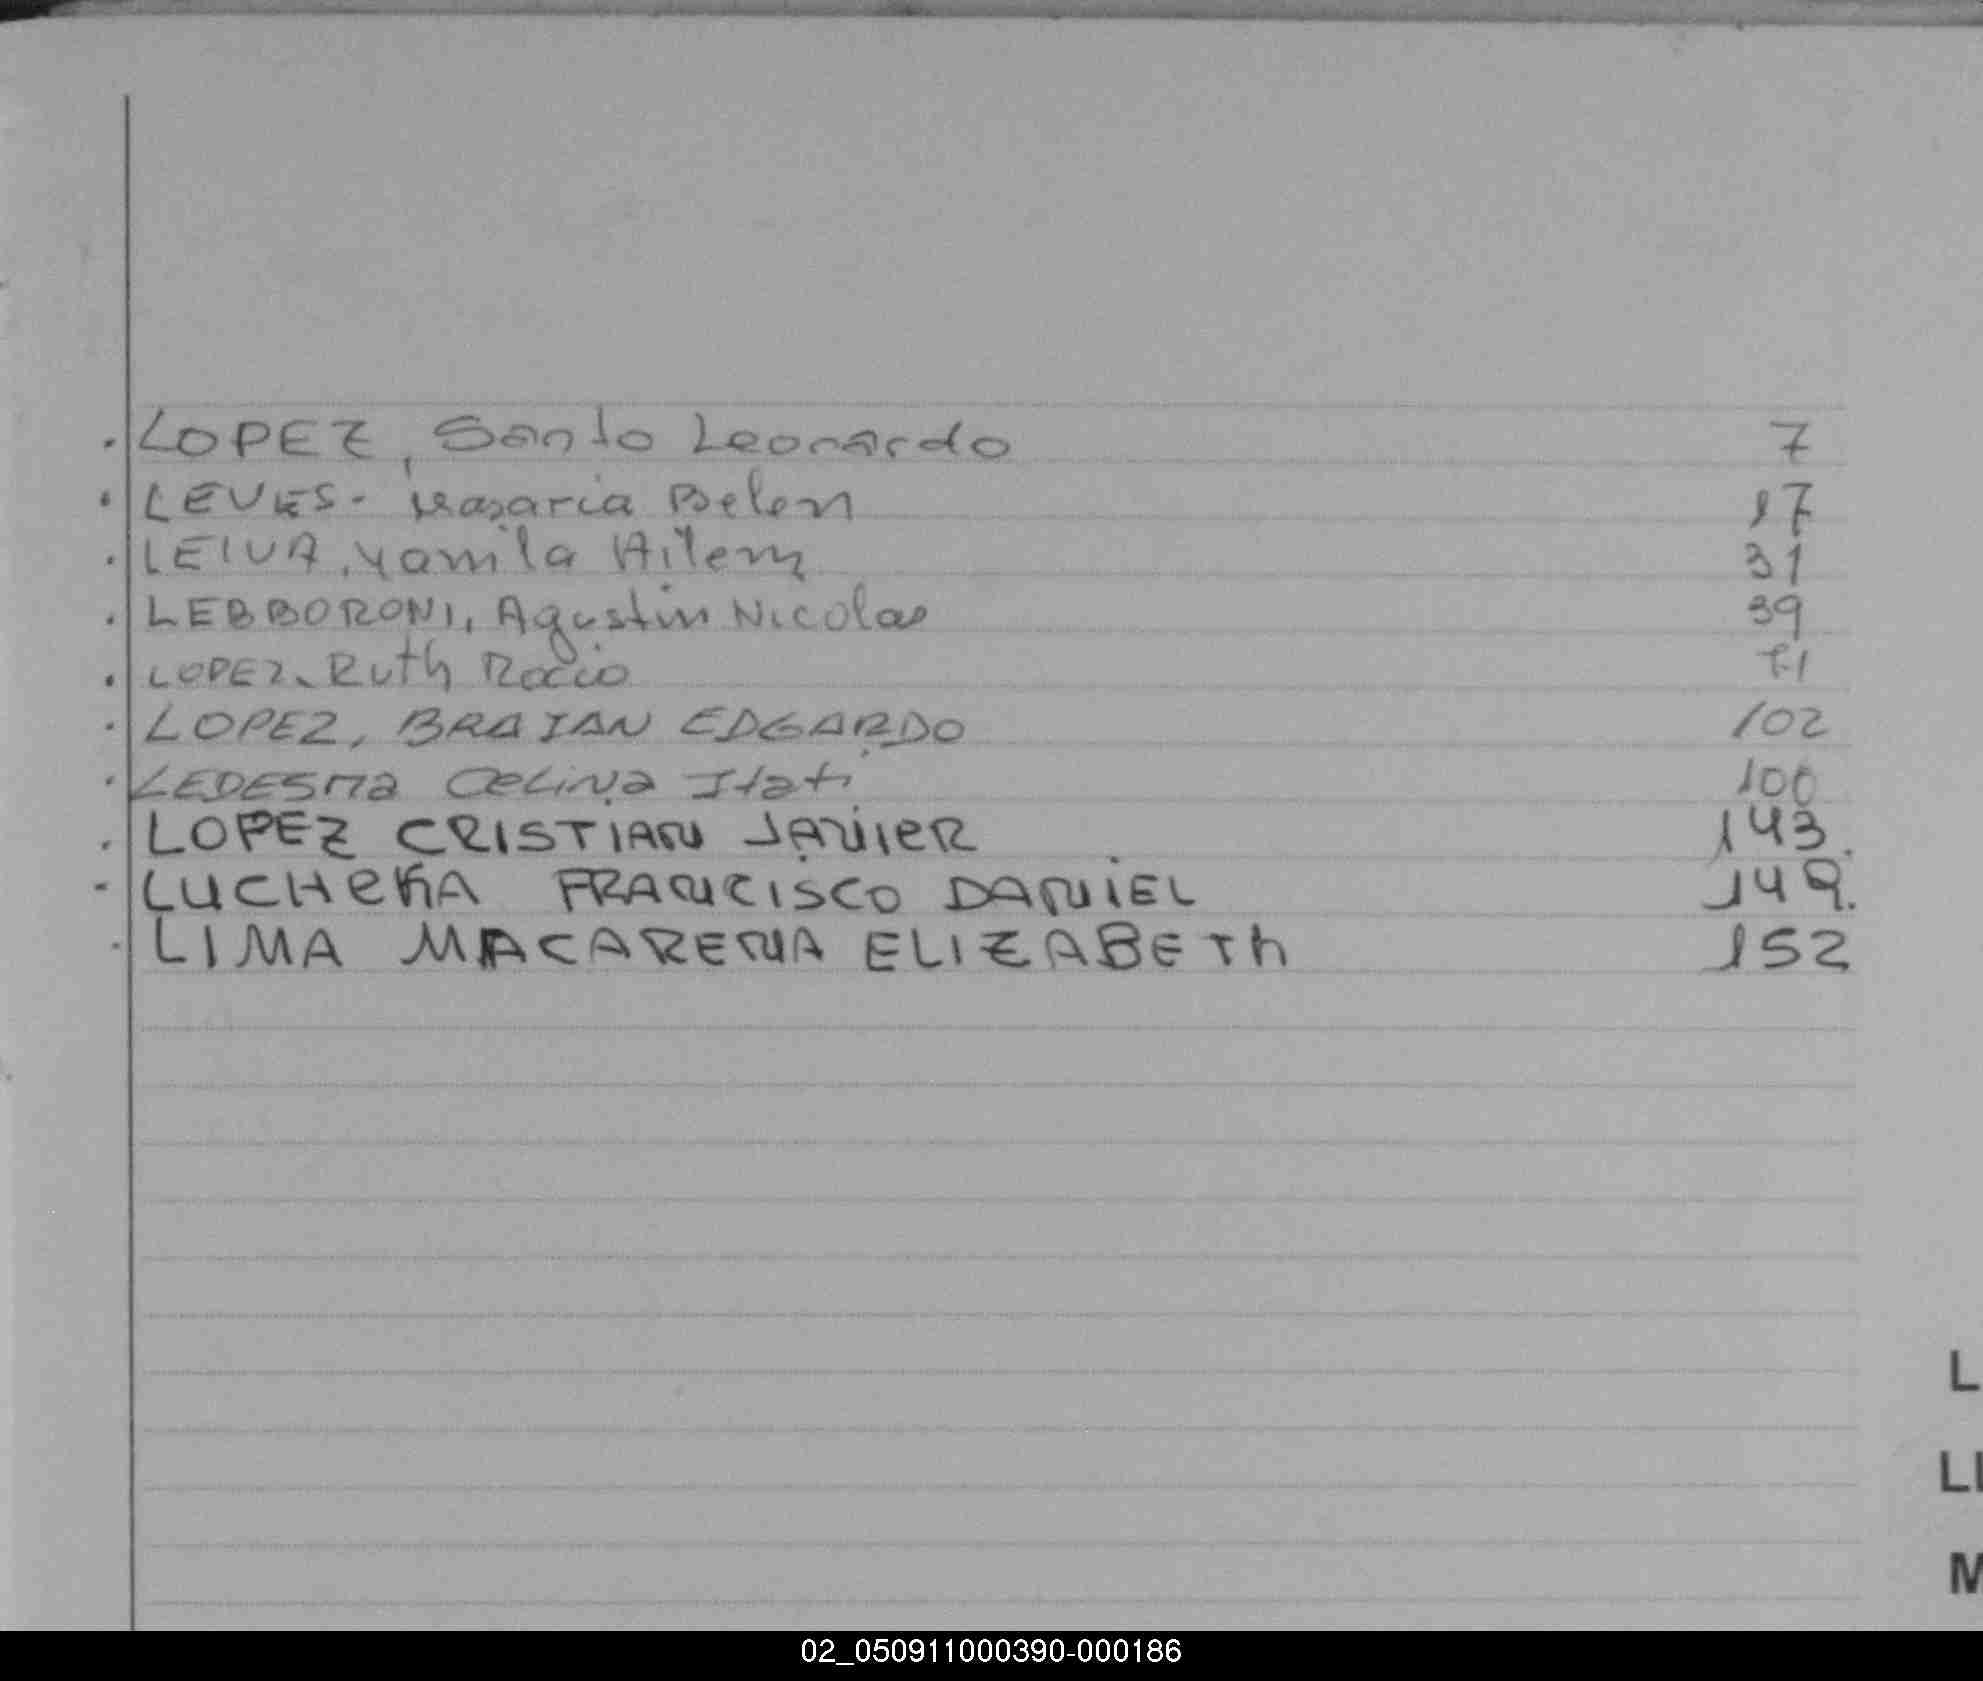 . LOPEZ, Santo Leonardo 7
. LEVES - Nazaria Belen 17
. LEIVA, Yamila Ailem 31
. LEBBORONI, Agustin Nicolas 39
. LOPEZ, Ruth Rocio 71
. LOPEZ, BRAIAN EDGARDO 102
. LEDESMA Celina Itati 106
. LOPEZ CRISTIAN JAVIER 143.
- LUCHEKA FRANCISCO DANIEL 149.
. LIMA MACARENA ELIZABETH 152
L
LL
M
02_050911000390-000186